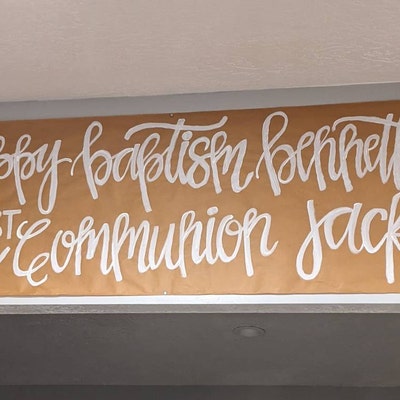 ppy baptism bennett
ST Communion Jack